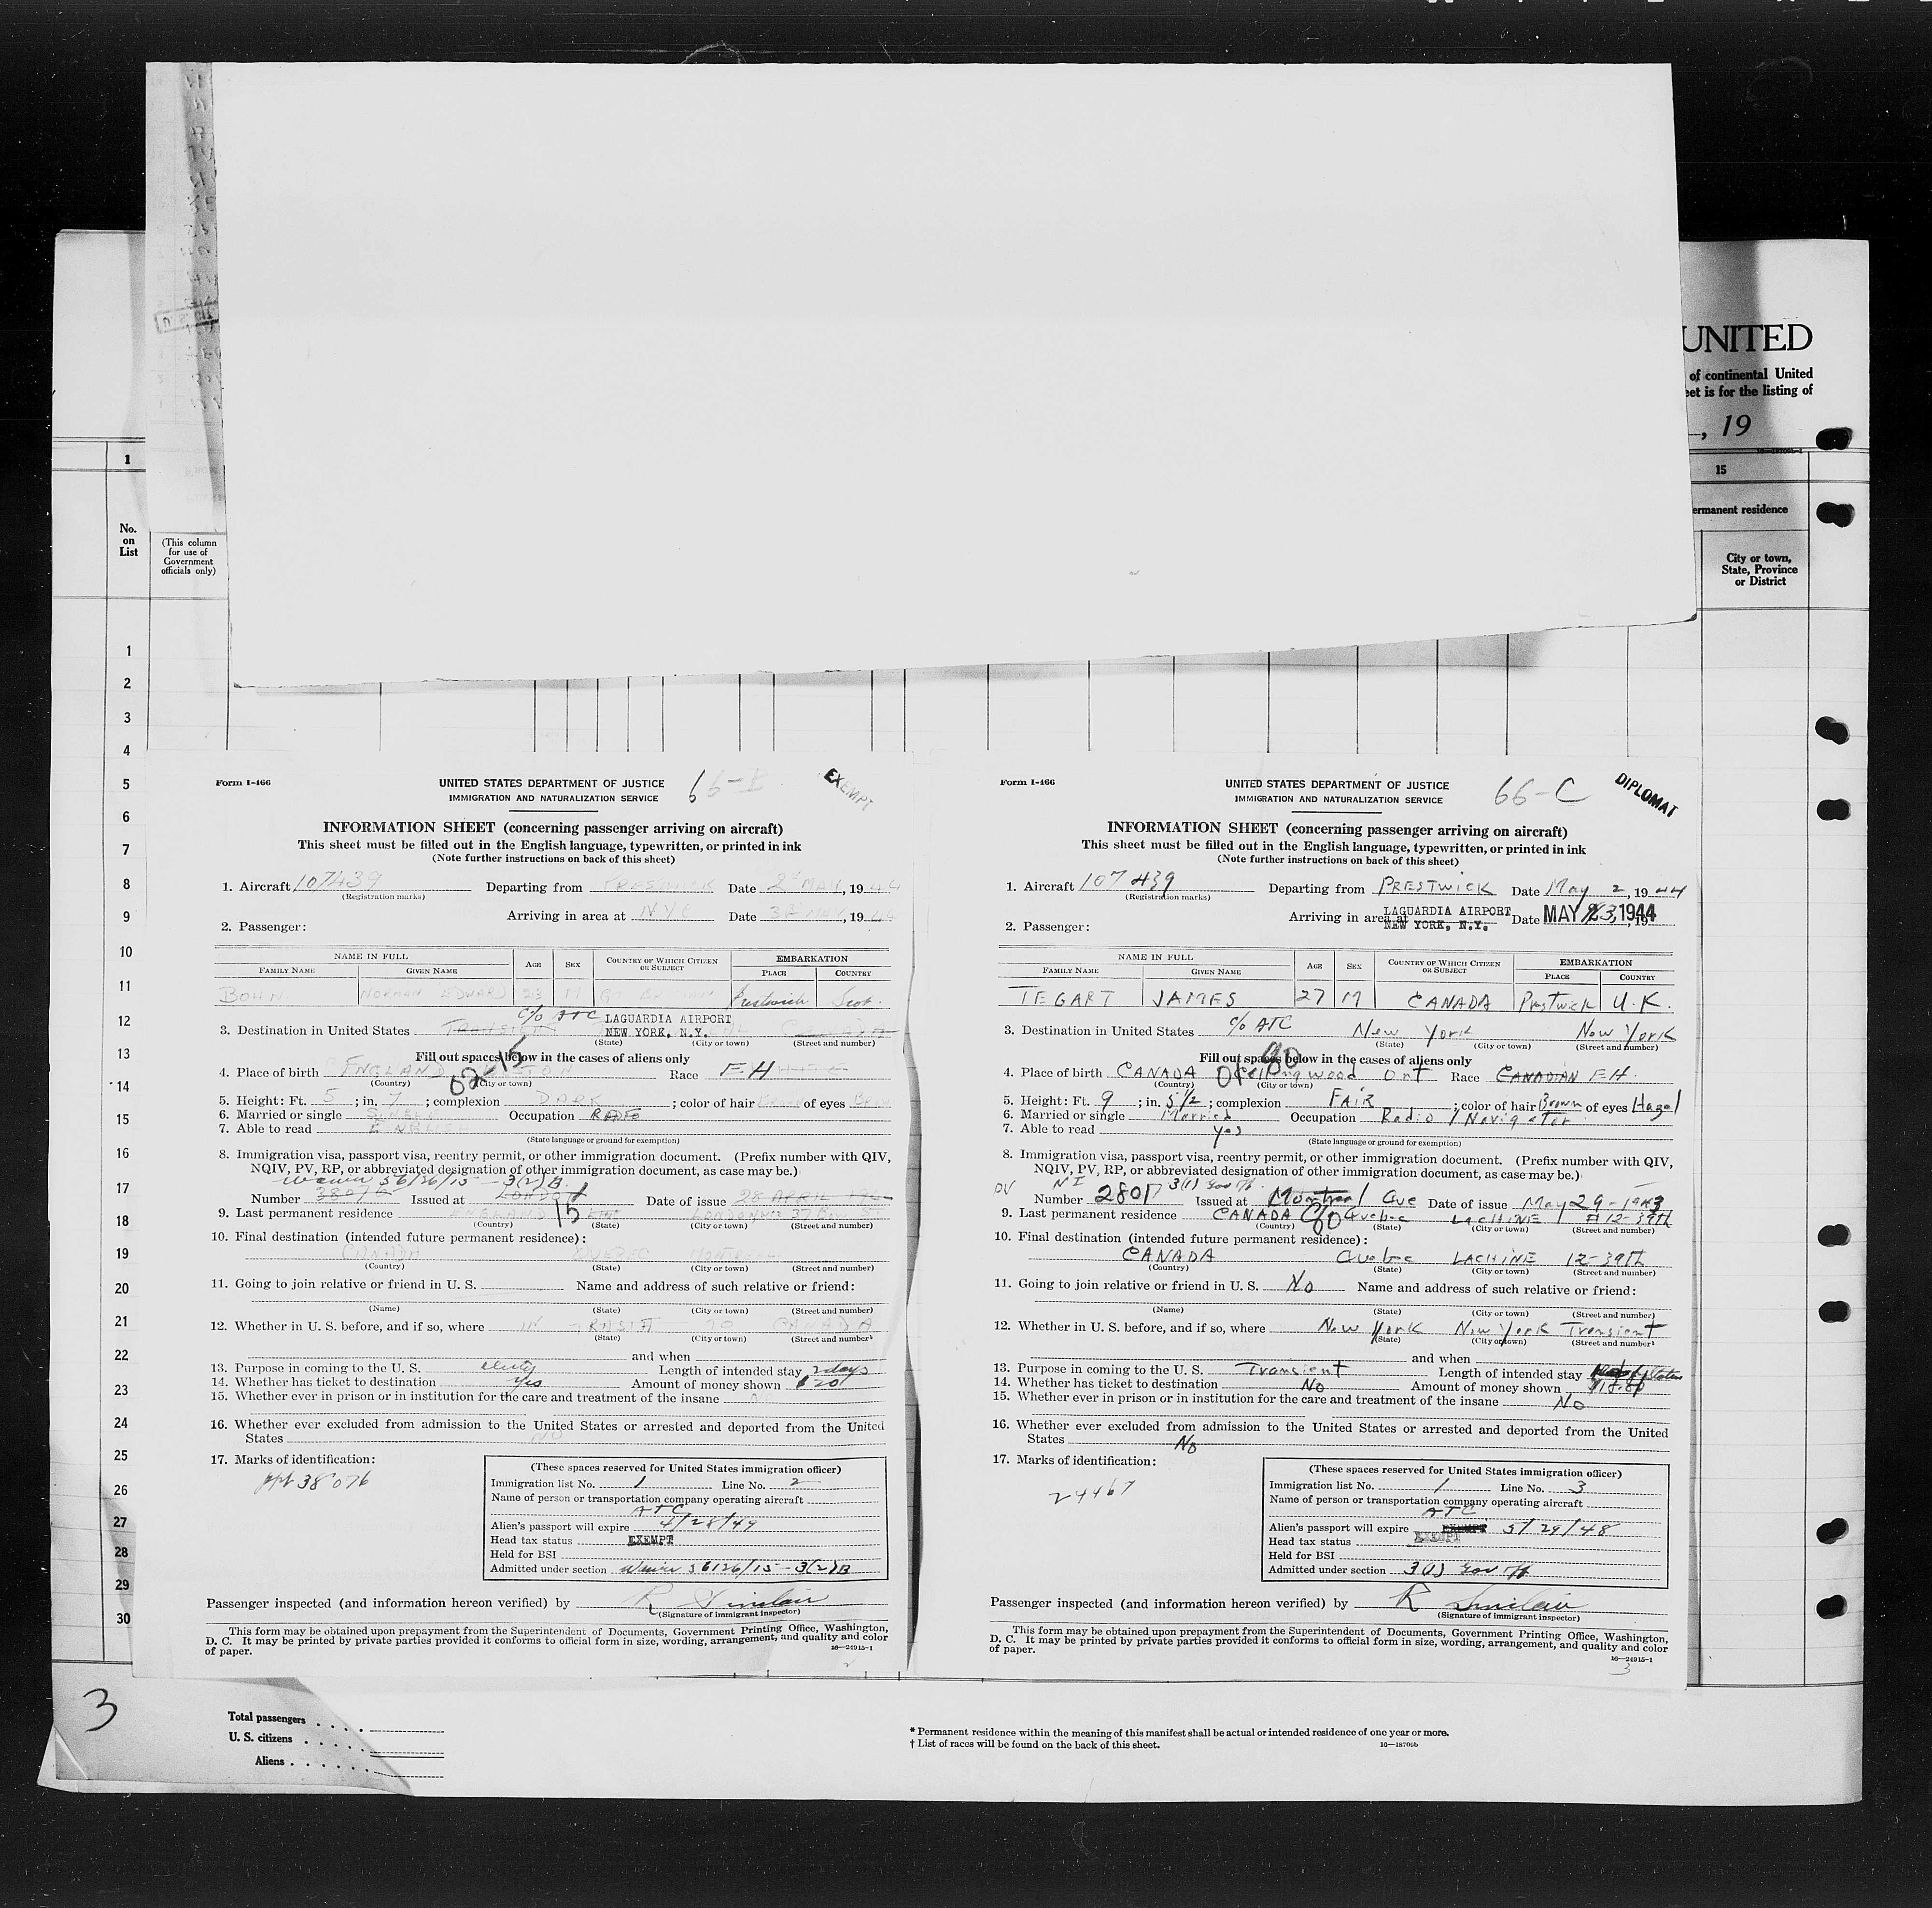 UNITED
of continental United
eet is for the listing of
, 19
16—18706b-1
1
15
ermanent residence
No.
on
List
(This column
for use of
Government
officials only)
City or town,
State, Province
or District
1
2
3
4
5
6
7
8
9
10
11
12
13
14
15
16
17
18
19
20
21
22
23
24
25
26
27
28
29
30
Form I-466
UNITED STATES DEPARTMENT OF JUSTICE
IMMIGRATION AND NATURALIZATION SERVICE
66-B
EXEMPT
INFORMATION SHEET (concerning passenger arriving on aircraft)
This sheet must be filled out in the English language, typewritten, or printed in ink
(Note further instructions on back of this sheet)
1. Aircraft 107439 Departing from PRESTWICK Date 2nd MAY, 19 44
(Registration marks)
Arriving in area at NYC Date 3rd MAY, 19 44
2. Passenger:
NAME IN FULL AGE SEX COUNTRY OF WHICH CITIZEN OR SUBJECT EMBARKATION
FAMILY NAME GIVEN NAME PLACE COUNTRY
BOHN NORMAN EDWARD 23 M GT BRITAIN Prestwick Scot.
c/o ATC LAGUARDIA AIRPORT
3. Destination in United States TRANSIENT NEW YORK, N.Y. CANADA
(State) (City or town) (Street and number)
Fill out spaces below in the cases of aliens only
02-15
4. Place of birth ENGLAND Race EH WHITE
(Country) (City or town)
5. Height: Ft. 5; in. 7; complexion DARK; color of hair BROWN of eyes BROWN
6. Married or single SINGLE Occupation RADIO
7. Able to read ENGLISH
(State language or ground for exemption)
8. Immigration visa, passport visa, reentry permit, or other immigration document. (Prefix number with QIV,
NQIV, PV, RP, or abbreviated designation of other immigration document, as case may be.)
Waiver 56126/15 - 3(2)B
Number 38076 Issued at LONDON Date of issue 28 APRIL 194
9. Last permanent residence ENGLAND 15 LONDON 37
(Country) (State) (City or town) (Street and number)
10. Final destination (intended future permanent residence):
CANADA QUEBEC MONTREAL
(Country) (State) (City or town) (Street and number)
11. Going to join relative or friend in U. S. Name and address of such relative or friend:
(Name) (State) (City or town) (Street and number)
12. Whether in U. S. before, and if so, where IN TRANSIT TO CANADA
(State) (City or town) (Street and number)
and when
13. Purpose in coming to the U. S. duty Length of intended stay 2 days
14. Whether has ticket to destination Yes Amount of money shown $20
15. Whether ever in prison or in institution for the care and treatment of the insane
16. Whether ever excluded from admission to the United States or arrested and deported from the United
States NO
17. Marks of identification:
ppt 38076
(These spaces reserved for United States immigration officer)
Immigration list No. 1 Line No. 2
Name of person or transportation company operating aircraft
ATC
Alien's passport will expire 4/28/49
Head tax status EXEMPT
Held for BSI
Admitted under section Waiver 56126/15 - 3(2)B
Passenger inspected (and information hereon verified) by R Sinclair
(Signature of immigrant inspector)
This form may be obtained upon prepayment from the Superintendent of Documents, Government Printing Office, Washington,
D. C. It may be printed by private parties provided it conforms to official form in size, wording, arrangement, and quality and color
of paper.
16—24915-1
2
Form I-466
UNITED STATES DEPARTMENT OF JUSTICE
IMMIGRATION AND NATURALIZATION SERVICE
66-C
DIPLOMAT
INFORMATION SHEET (concerning passenger arriving on aircraft)
This sheet must be filled out in the English language, typewritten, or printed in ink
(Note further instructions on back of this sheet)
1. Aircraft 107439 Departing from PRESTWICK Date May 2, 19 44
(Registration marks)
Arriving in area at LAGUARDIA AIRPORT NEW YORK, N.Y. Date MAY 3, 1944
2. Passenger:
NAME IN FULL AGE SEX COUNTRY OF WHICH CITIZEN OR SUBJECT EMBARKATION
FAMILY NAME GIVEN NAME PLACE COUNTRY
TEGART JAMES 27 M CANADA Prestwick U.K.
3. Destination in United States c/o ATC New York New York
(State) (City or town) (Street and number)
Fill out spaces below in the cases of aliens only
01-00
4. Place of birth CANADA Collingwood Ont Race CANADIAN EH.
(Country) (City or town)
5. Height: Ft. 9; in. 5 1/2; complexion FAIR; color of hair Brown of eyes Hazel
6. Married or single Married Occupation Radio / Navigator
7. Able to read yes
(State language or ground for exemption)
8. Immigration visa, passport visa, reentry permit, or other immigration document. (Prefix number with QIV,
NQIV, PV, RP, or abbreviated designation of other immigration document, as case may be.)
PV NI 3(1) Gov
Number 2801 Issued at Montreal Que Date of issue May 29-1943
9. Last permanent residence CANADA Quebec LACHINE # 12-39th
(Country) (State) (City or town) (Street and number)
10. Final destination (intended future permanent residence):
CANADA Quebec LACHINE 12-39th
(Country) (State) (City or town) (Street and number)
11. Going to join relative or friend in U. S. No Name and address of such relative or friend:
(Name) (State) (City or town) (Street and number)
12. Whether in U. S. before, and if so, where New York New York Transient
(State) (City or town) (Street and number)
and when
13. Purpose in coming to the U. S. Transient Length of intended stay
14. Whether has ticket to destination No Amount of money shown
15. Whether ever in prison or in institution for the care and treatment of the insane No
16. Whether ever excluded from admission to the United States or arrested and deported from the United
States No
17. Marks of identification:
24467
(These spaces reserved for United States immigration officer)
Immigration list No. 1 Line No. 3
Name of person or transportation company operating aircraft
ATC
Alien's passport will expire EXEMPT 5/29/48
Head tax status EXEMPT
Held for BSI
Admitted under section 3(1) Gov
Passenger inspected (and information hereon verified) by R Sinclair
(Signature of immigrant inspector)
This form may be obtained upon prepayment from the Superintendent of Documents, Government Printing Office, Washington,
D. C. It may be printed by private parties provided it conforms to official form in size, wording, arrangement, and quality and color
of paper.
16—24915-1
3
3
Total passengers
U. S. citizens
Aliens
* Permanent residence within the meaning of this manifest shall be actual or intended residence of one year or more.
† List of races will be found on the back of this sheet.
16—18706b